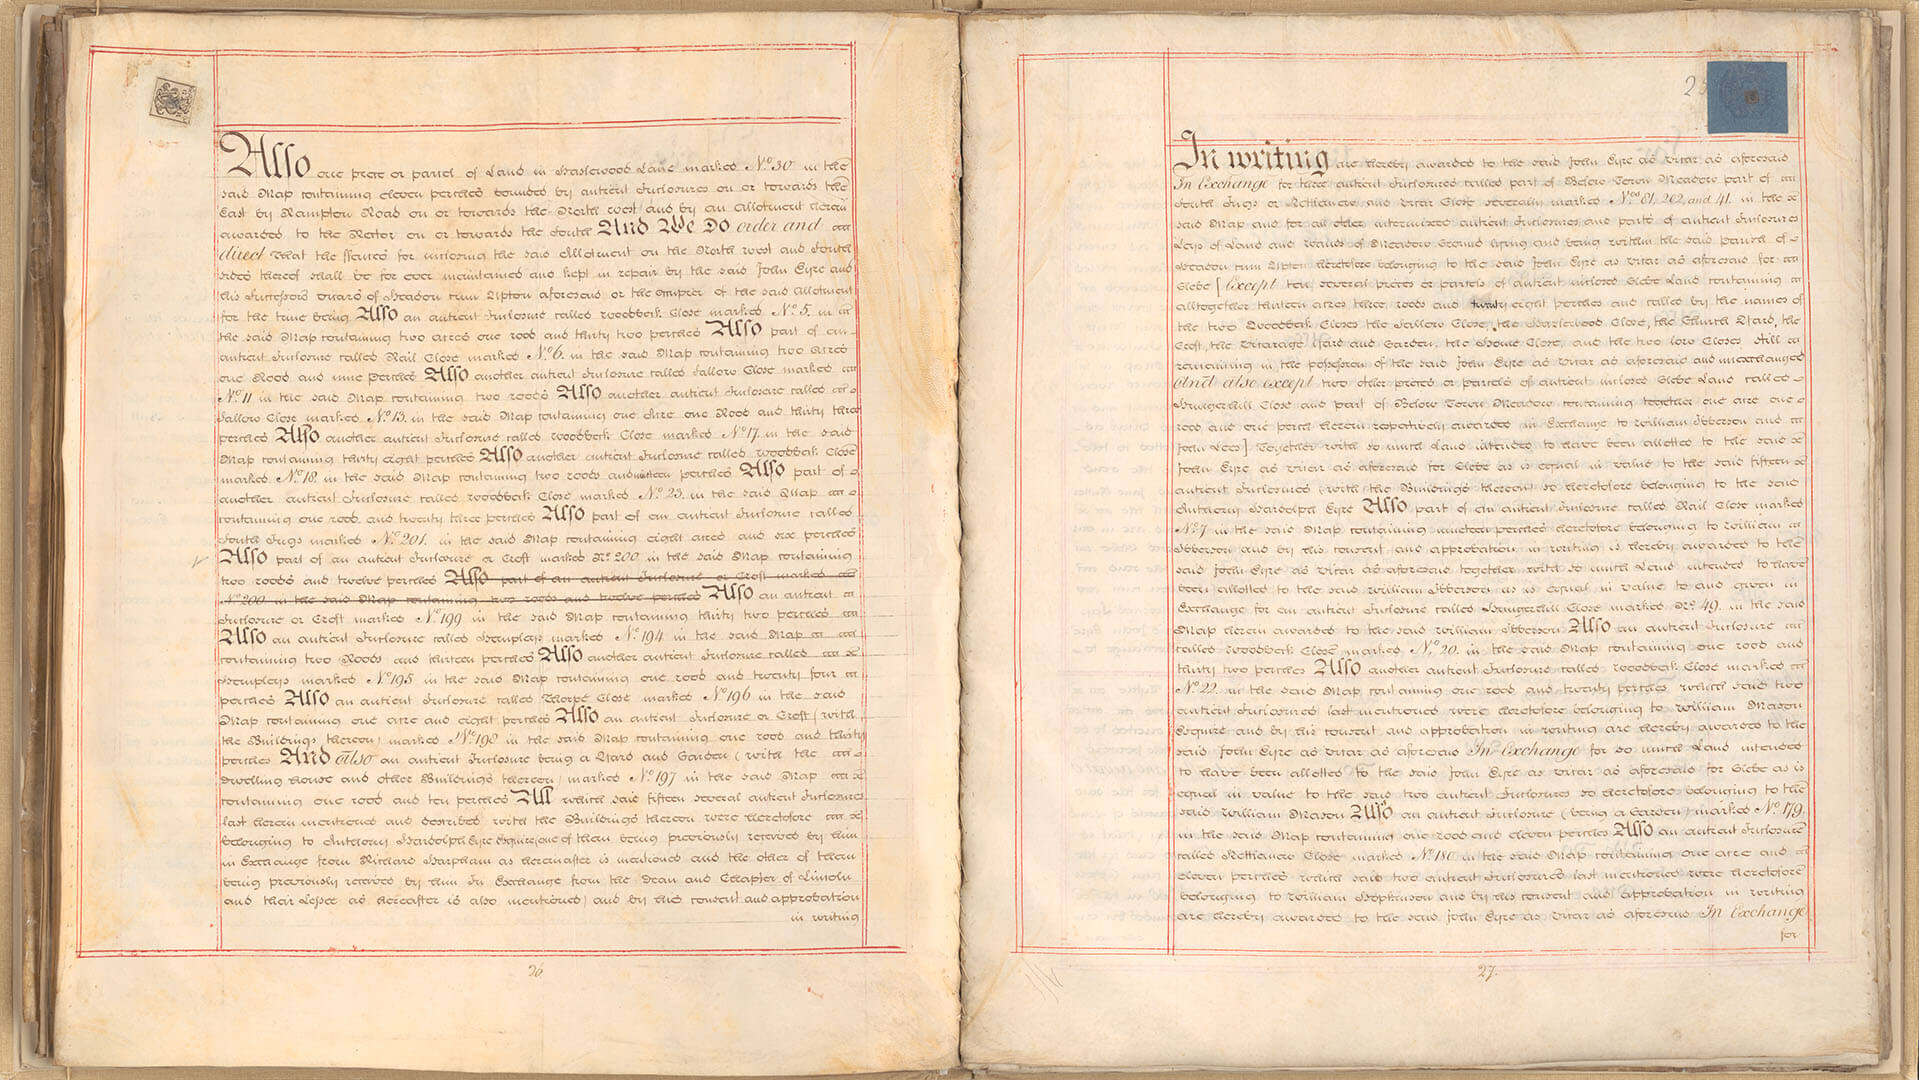 Also one piece or parcel of Land in Haslewood Lane marked No. 30 in the
said Map containing eleven perches bounded by antient Inclosures on or towards the
East by Rampton Road on or towards the North West and by an Allotment herein
awarded to the Rector on or towards the South And We Do order and
direct That the ffences for inclosing the said Allotment on the North West and South
sides thereof shall be for ever maintained and kept in repair by the said John Eyre and
his Successors Vicars of Headon cum Upton aforesaid or the Occupier of the said Allotment
for the time being Also an antient Inclosure called Woodbeck Close marked No. 5. in
the said Map containing two acres one rood and thirty two perches Also part of an
antient Inclosure called Rail Close marked No. 6. in the said Map containing two Acres
one Rood and nine perches Also another antient Inclosure called Sallow Close marked
No. 11 in the said Map containing two roods Also another antient Inclosure called
Sallow Close marked No. 13. in the said Map containing one Acre one Rood and thirty three
perches Also another antient Inclosure called Woodbeck Close marked No. 17. in the said
Map containing thirty eight perches Also another antient Inclosure called Woodbeck Close
marked No. 18. in the said Map containing two roods and perches Also part of
another antient Inclosure called Woodbeck Close marked No. 23. in the said Map
containing one rood and twenty three perches Also part of an antient Inclosure called
South Ings marked No. 201. in the said Map containing eight acres and six perches
Also part of an antient Inclosure or Croft marked No. 200 in the said Map containing
two roods and twelve perches Also part of an antient Inclosure or Croft marked
No. 200 in the said Map containing two roods and twelve perches Also an antient
Inclosure or Croft marked No. 199 in the said Map containing thirty two perches
Also an antient Inclosure called Hempleys marked No. 194 in the said Map
containing two Roods and thirteen perches Also another antient Inclosure called
Hempleys marked No. 195 in the said Map containing one rood and twenty four
perches Also an antient Inclosure called Thorpe Close marked No. 196 in the said
Map containing one acre and eight perches Also an antient Inclosure or Croft (with
the Buildings thereon) marked No. 198 in the said Map containing one rood and thirty
perches And also an antient Inclosure being a Yard and Garden (with the
dwelling house and other Buildings thereon) marked No. 197 in the said Map
containing one rood and ten perches All which said fifteen several antient Inclosures
last herein mentioned and described with the Buildings thereon were theretofore
belonging to Anthony Hardolph Eyre Esquire one of them being previously received by him
in Exchange from Richard Harpham as hereinafter is mentioned and the other of them
being previously received by him In Exchange from the Dean and Chapter of Lincoln
and their Lessee as hereafter is also mentioned) and by his consent and approbation
in writing
26
In writing are hereby awarded to the said John Eyre as Vicar as aforesaid
In Exchange for three antient Inclosures called part of Below Town Meadow part of
South Ings or Nettlemere and Vicar Close severally marked Nos. 81, 202, and 41. in the
said Map and for all other intermixed antient Inclosures and parts of antient Inclosures
Leys of Land and Wands of Meadow Ground lying and being within the said parish of
Headon cum Upton theretofore belonging to the said John Eyre as Vicar as aforesaid for
Glebe [Except ten several pieces or parcels of antient inclosed Glebe Land containing
alltogether thirteen acres three roods and twenty eight perches and called by the names of
the two Woodbeck Closes the Sallow Close, the Hazlewood Close, the Church Yard, the
Croft, the Vicarage Yard and Garden, the Home Close, and the two low Closes still
remaining in the possession of the said John Eyre as Vicar as aforesaid and unexchanged
And also except two other pieces or parcels of antient inclosed Glebe Land called
Hungerhill Close and part of Below Town Meadow containing together one acre one
rood and one perch herein respectively awarded in Exchange to William Ibberson and
John Lees] Together with so much Land intended to have been allotted to the said
John Eyre as Vicar as aforesaid for Glebe as is equal in value to the said fifteen
antient Inclosures (with the Buildings thereon) so theretofore belonging to the said
Anthony Hardolph Eyre Also part of an antient Inclosure called Rail Close marked
No. 7 in the said Map containing nineteen perches theretofore belonging to William
Ibberson and by his consent and approbation in writing is hereby awarded to the
said John Eyre as Vicar as aforesaid together with so much Land intended to have
been allotted to the said William Ibberson as is equal in value to and given in
Exchange for an antient Inclosure called Hungerhill Close marked No. 49. in the said
Map herein awarded to the said William Ibberson Also an antient Inclosure
called Woodbeck Close marked No. 20. in the said Map containing one rood and
thirty two perches Also another antient Inclosure called Woodbeck Close marked
No. 22. in the said Map containing one rood and twenty perches which said two
antient Inclosures last mentioned were theretofore belonging to William Mason
Esquire and by his consent and approbation in writing are hereby awarded to the
said John Eyre as Vicar as aforesaid In Exchange for so much Land intended
to have been allotted to the said John Eyre as Vicar as aforesaid for Glebe as is
equal in value to the said two antient Inclosures so theretofore belonging to the
said William Mason Also an antient Inclosure (being a Garden) marked No. 179.
in the said Map containing one rood and eleven perches Also an antient Inclosure
called Nettlemere Close marked No. 180. in the said Map containing one acre and
eleven perches which said two antient Inclosures last mentioned were theretofore
belonging to William Hopkinson and by his consent and approbation in writing
are hereby awarded to the said John Eyre as Vicar as aforesaid In Exchange
for
27.